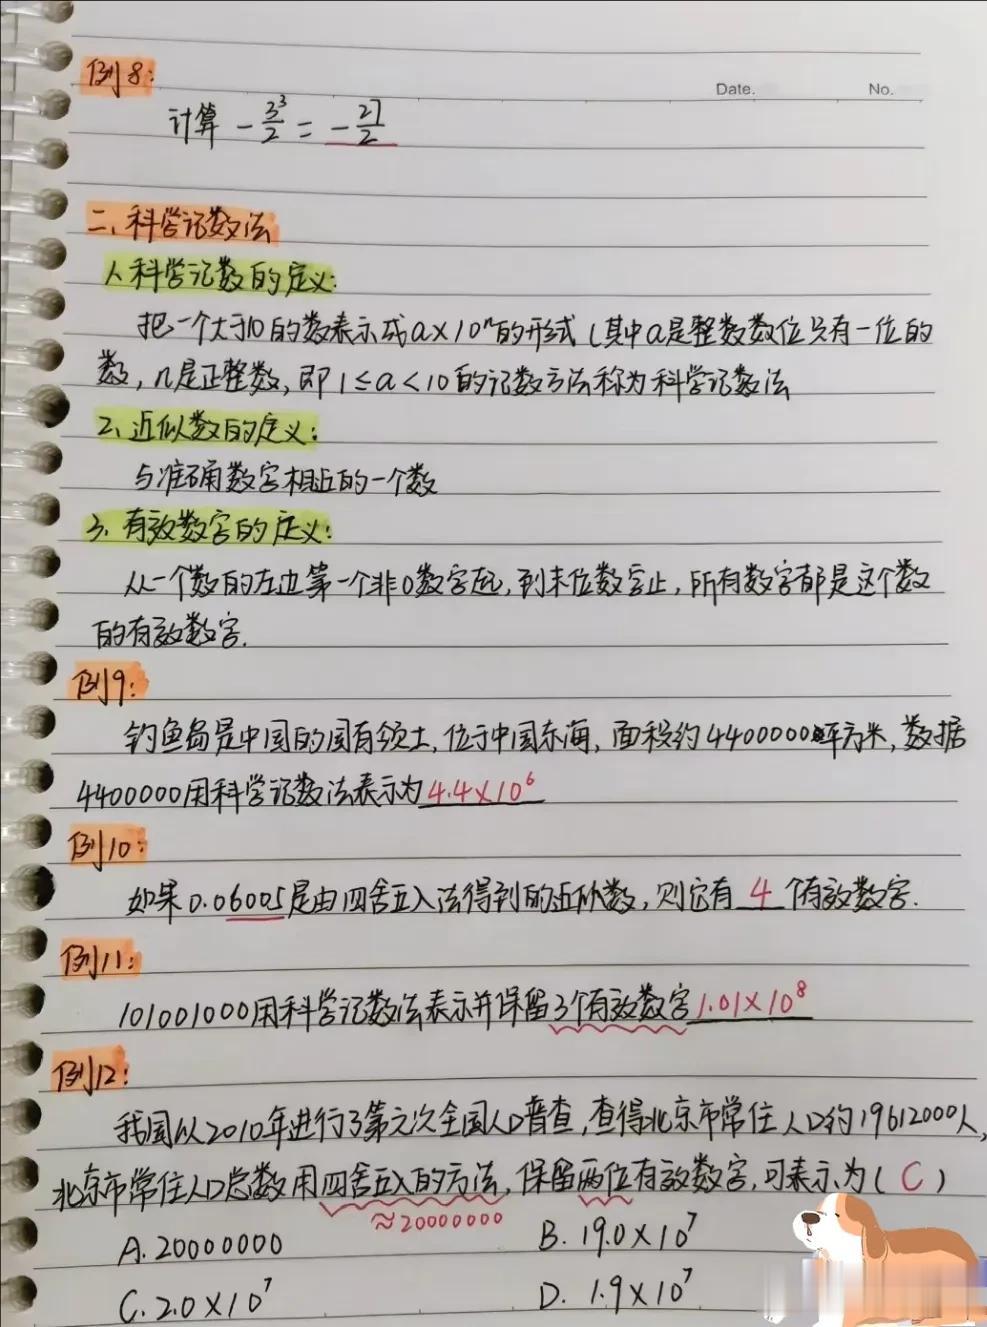 例8:
Date.
No.
计算 -3³/2 = -27/2
二、科学记数法
1、科学记数的定义:
把一个大于10的数表示成a×10ⁿ的形式(其中a是整数数位只有一位的
数,n是正整数,即1≤a<10的记数方法称为科学记数法
2、近似数的定义:
与准确数字相近的一个数
3、有效数字的定义:
从一个数的左边第一个非0数字起,到末位数字止,所有数字都是这个数
的有效数字.
例9:
钓鱼岛是中国的固有领土,位于中国东海,面积约4400000平方米,数据
4400000用科学记数法表示为4.4×10⁶
例10:
如果0.06005是由四舍五入法得到的近似数,则它有4个有效数字.
例11:
101001000用科学记数法表示并保留3个有效数字1.01×10⁸
例12:
我国从2010年进行了第六次全国人口普查,查得北京市常住人口约19612000人,
北京市常住人口总数用四舍五入的方法,保留两位有效数字,可表示为(C)
≈20000000
A.20000000
B.19.0×10⁷
C.2.0×10⁷
D.1.9×10⁷